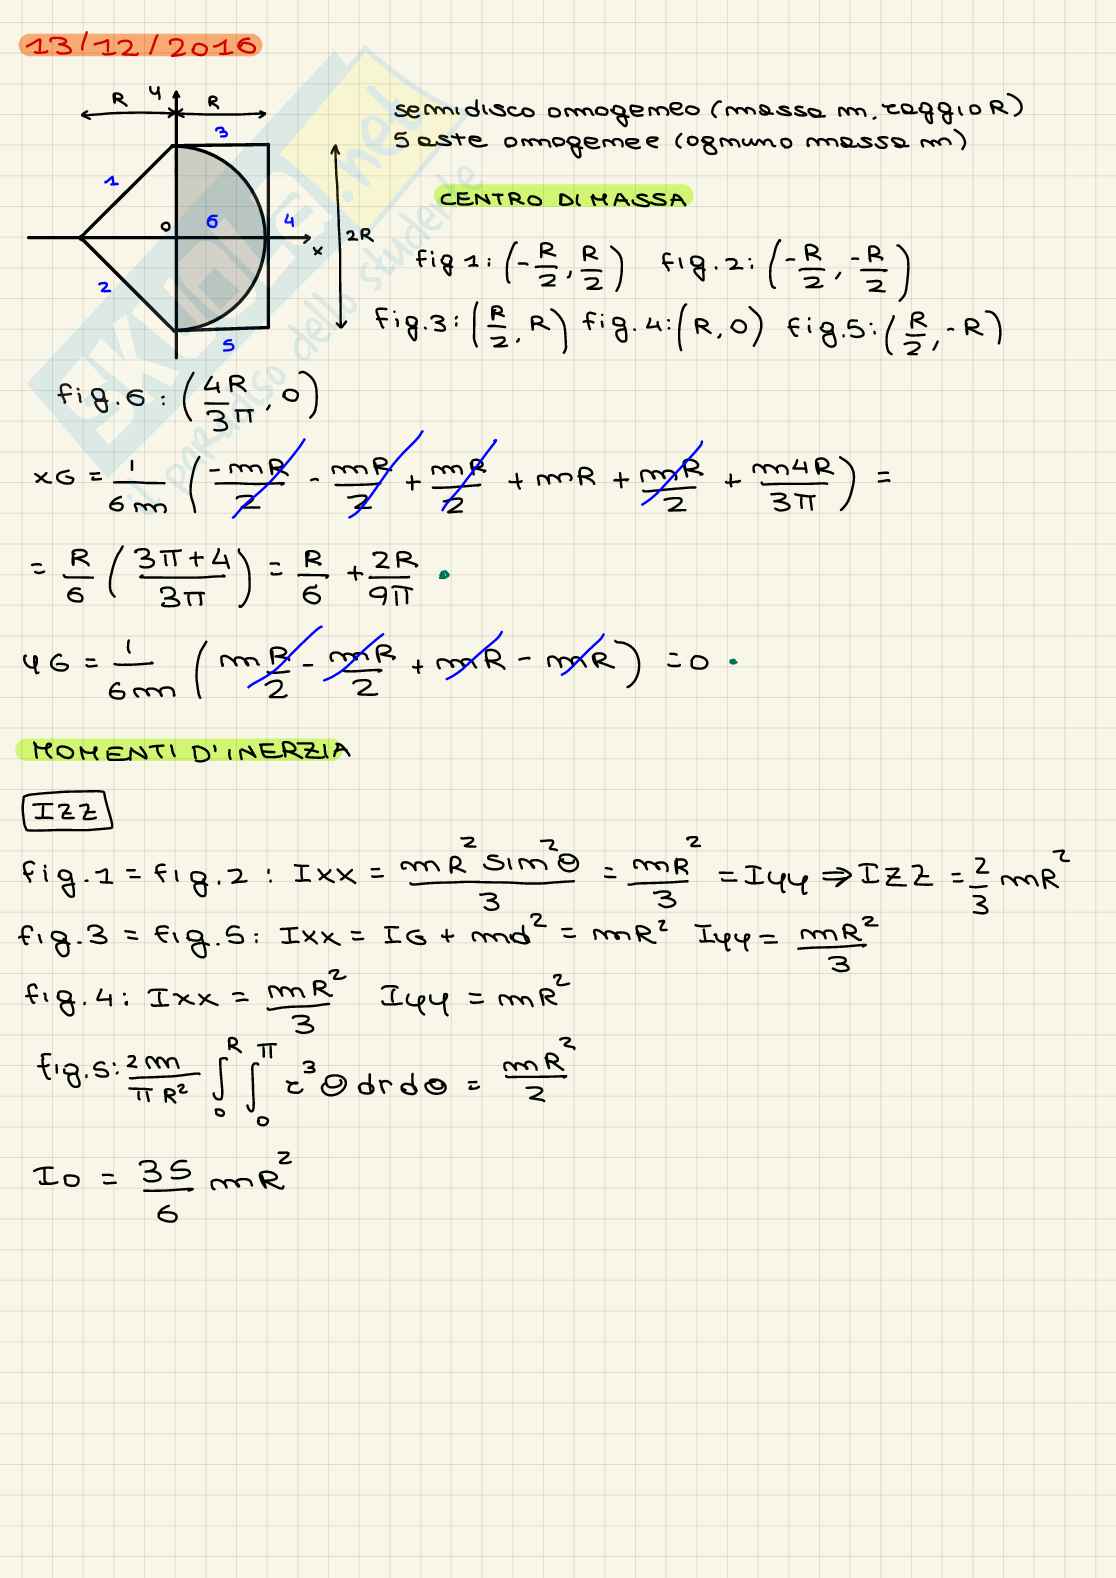 13/12/2016
R y R
3
semidisco omogeneo (massa m, raggio R)
5 aste omogenee (ognuno massa m)
1
CENTRO DI MASSA
0 6 4
x 2R
fig 1: (-R/2, R/2) fig.2: (-R/2, -R/2)
2
fig.3: (R/2, R) fig.4: (R, 0) fig.5: (R/2, -R)
5
fig.6: (4R/3π, 0)
xG = 1/6m (-mR/2 - mR/2 + mR/2 + mR + mR/2 + m4R/3π) =
= R/6 (3π+4/3π) = R/6 + 2R/9π
yG = 1/6m (mR/2 - mR/2 + mR - mR) = 0
MOMENTI D'INERZIA
Izz
fig.1 = fig.2: Ixx = mR² sin²θ/3 = mR²/3 = Iyy ⇒ Izz = 2/3 mR²
fig.3 = fig.5: Ixx = IG + md² = mR² Iyy = mR²/3
fig.4: Ixx = mR²/3 Iyy = mR²
fig.5: 2m/πR² ∫₀ᴿ ∫₀^π r³ θ dr dθ = mR²/2
Io = 35/6 mR²
SKUOLA.net
il paradiso dello studente